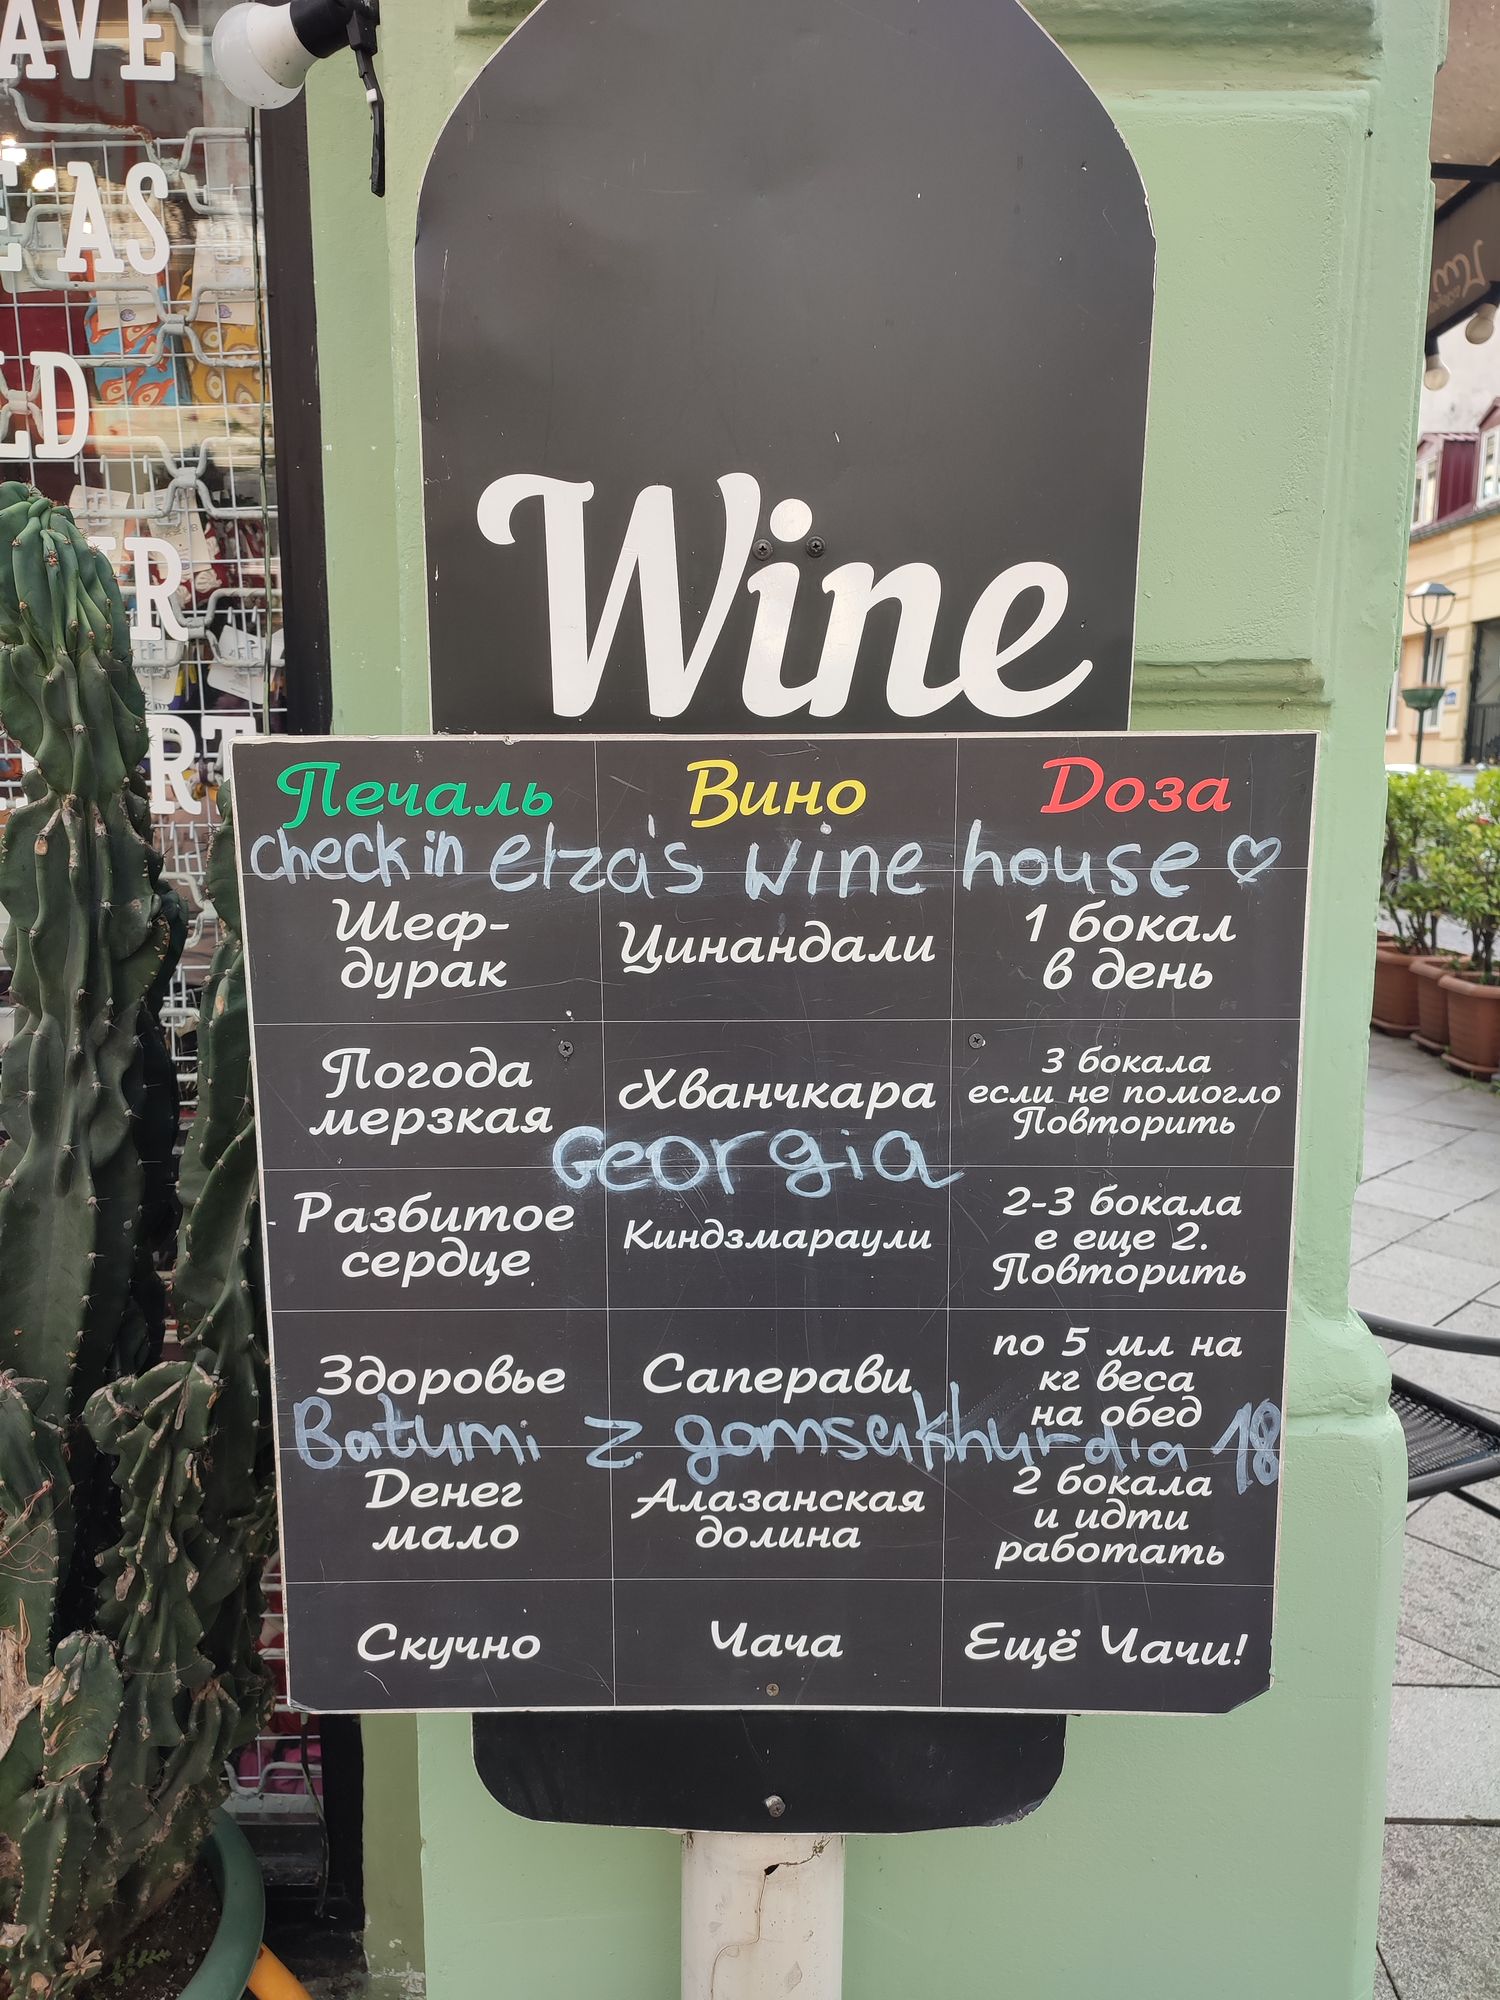 AVE
AS
LD
RT
Wine
Печаль Вино Доза
check in elza's wine house
Шеф-
дурак
Цинандали
1 бокал
в день
Погода
мерзкая
Хванчкара
3 бокала
если не помогло
Повторить
Georgia
Разбитое
сердце
Киндзмараули
2-3 бокала
е еще 2.
Повторить
Здоровье
Саперави
по 5 мл на
кг веса
на обед
Batumi z gamsakhurdia 18
Денег
мало
Алазанская
долина
2 бокала
и идти
работать
Скучно
Чача
Ещё Чачи!